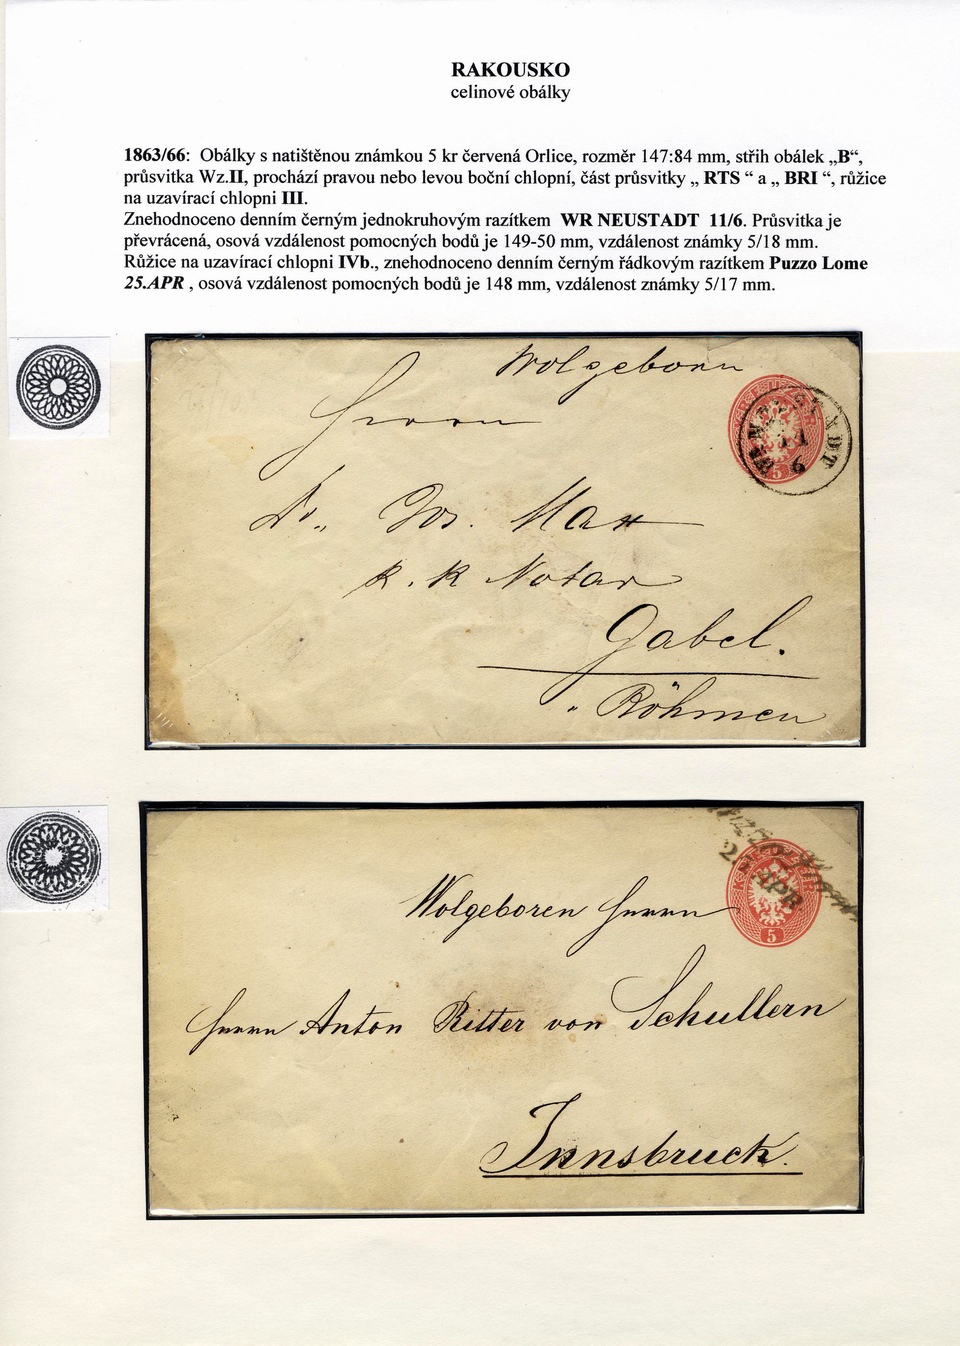 RAKOUSKO
celinové obálky
1863/66: Obálky s natištěnou známkou 5 kr červená Orlice, rozměr 147:84 mm, střih obálek „B“,
průsvitka Wz.II, prochází pravou nebo levou boční chlopní, část průsvitky „ RTS “ a „ BRI “, růžice
na uzavírací chlopni III.
Znehodnoceno denním černým jednokruhovým razítkem WR NEUSTADT 11/6. Průsvitka je
převrácená, osová vzdálenost pomocných bodů je 149-50 mm, vzdálenost známky 5/18 mm.
Růžice na uzavírací chlopni IVb., znehodnoceno denním černým řádkovým razítkem Puzzo Lome
25.APR , osová vzdálenost pomocných bodů je 148 mm, vzdálenost známky 5/17 mm.
Wolgeborn
Herrn
Dr. Jos. Max
k. k Notar
Gabel.
Böhmen
5
Wolgeboren Herrn
Herrn Anton Ritter von Schullern
Innsbruck.
APR
5